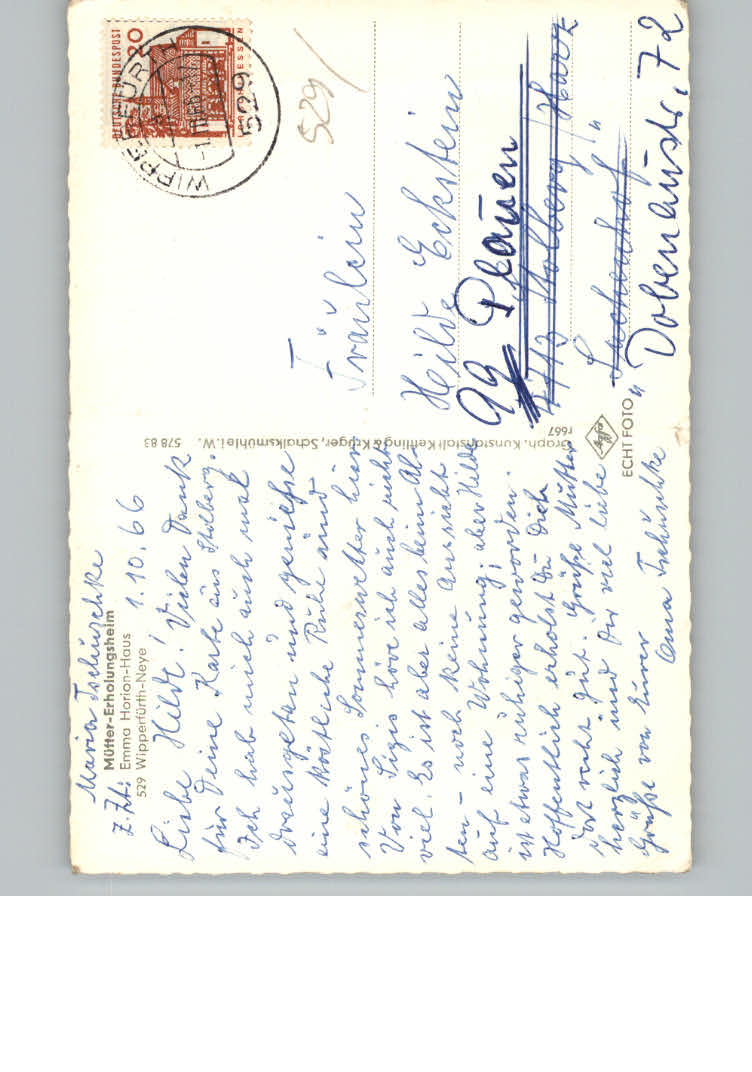 Maria Tschuschke
Mütter-Erholungsheim
z. Zt: Emma Horion-Haus
529 Wipperfürth-Neye 1.10.66
Liebe Hilde! Vielen Dank
für Deine Karte aus Stolberg.
Ich hab mich auch mal
drausgetan und genieße
eine köstliche Ruhe und
schönes Sommerwetter hier.
Von Sigis höre ich auch nicht
viel. Es ist aber alles beim Al-
ten - noch keine Aussicht
auf eine Wohnung; aber Hilde
ist etwas ruhiger geworden.
Hoffentlich erholst Du Dich
dort recht gut. Grüße Mutter
herzlich und Dir viel liebe
Grüße von Eurer
Oma Tschuschke
Graph. Kunstanstalt Kettling & Krüger, Schalksmühle i. W. 578 83
r667
Agfa
ECHT FOTO
DEUTSCHE BUNDESPOST
20
HESSEN
WIPPERFÜRTH
529
529
Fräulein
Hilde Eckstein
99 Plauen
4713 Stolberg/Harz
"
" Dobenaustr. 72